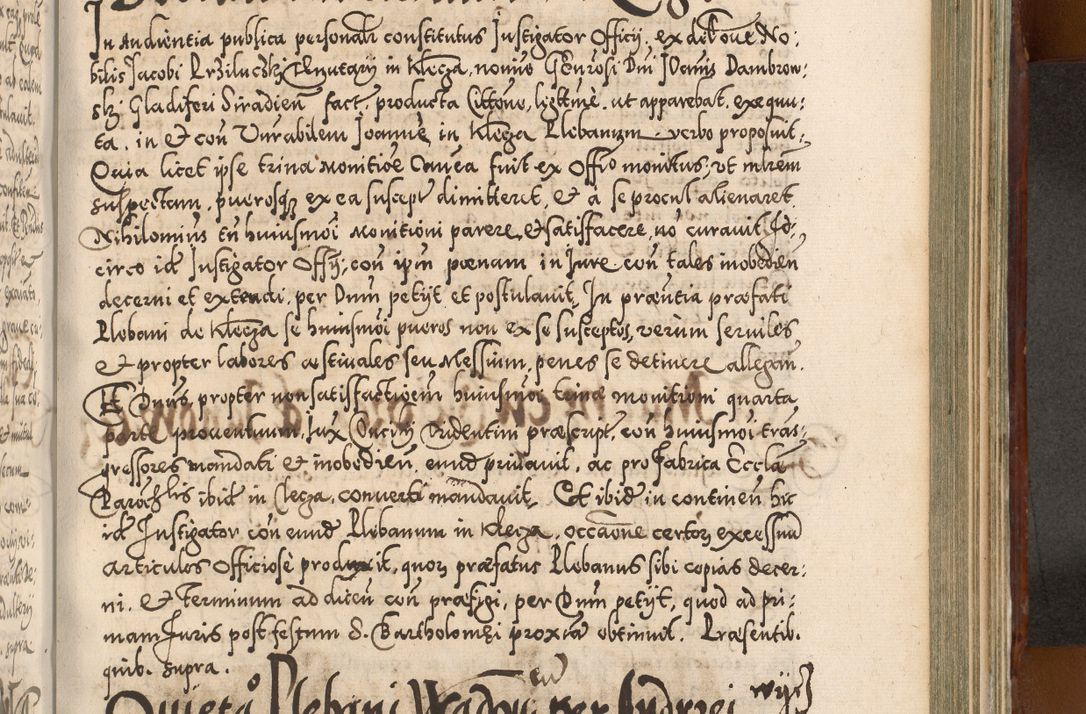 In Audientia publica personaliter constitutus Instigator Officij, ex delatione No:
bilis Jacobi Przilucski Tenutarij in Klecza, nomine Generosi Dni Joannis Dambrow:
ski Gladiferi Siradien fact. producta Citatione, legittime, ut apparebat, exequu:
ta, in et con Venerabilem Joannem in Klecza Plebanum verbo proposuit,
Quia licet ipse trina monitione Canonica fuit ex Officio monitus, ut mulierem
suspectam, puerosq, ex ea suscept dimitteret, et a se procul alienaret,
Nihilominus tn huiusmoi monitioni parere, et satisfacere, no curavit. Id:
circo ide Instigator Offij, con ipm poenam in Jure con tales inobedien
decerni et extendi, per Dnm petijt et postulavit. In praesentia praefati
Plebani de Klecza se huiusmoi pueros non ex se susceptos, verum serviles
et propter labores aestivales seu Messium, penes se detinere allegan.
Et Dnus, propter non satisfactioem huiusmoi trina monitioni quarta
parte proventuum, iux Concilij Tridentini praescript, con huiusmoi tras:
gressores mandati et inobedien, eund privavit, ac pro fabrica Eccla
Parochlis ibid in Clecza, converti mandavit. Et ibide in continen hic
ide Instigator con eund Plebanum in Klecza, occasione certor excessuu
articulos Officiose produxit, quor praefatus Plebanus sibi copias decer:
ni, et Terminum ad dicen con praefigi, per Dnm petijt, quod ad pri:
mam Juris post festum S. Bartholomei proxia obtinuit. Praesentib.
quib. supra.
Quieta Plebani per Andrei